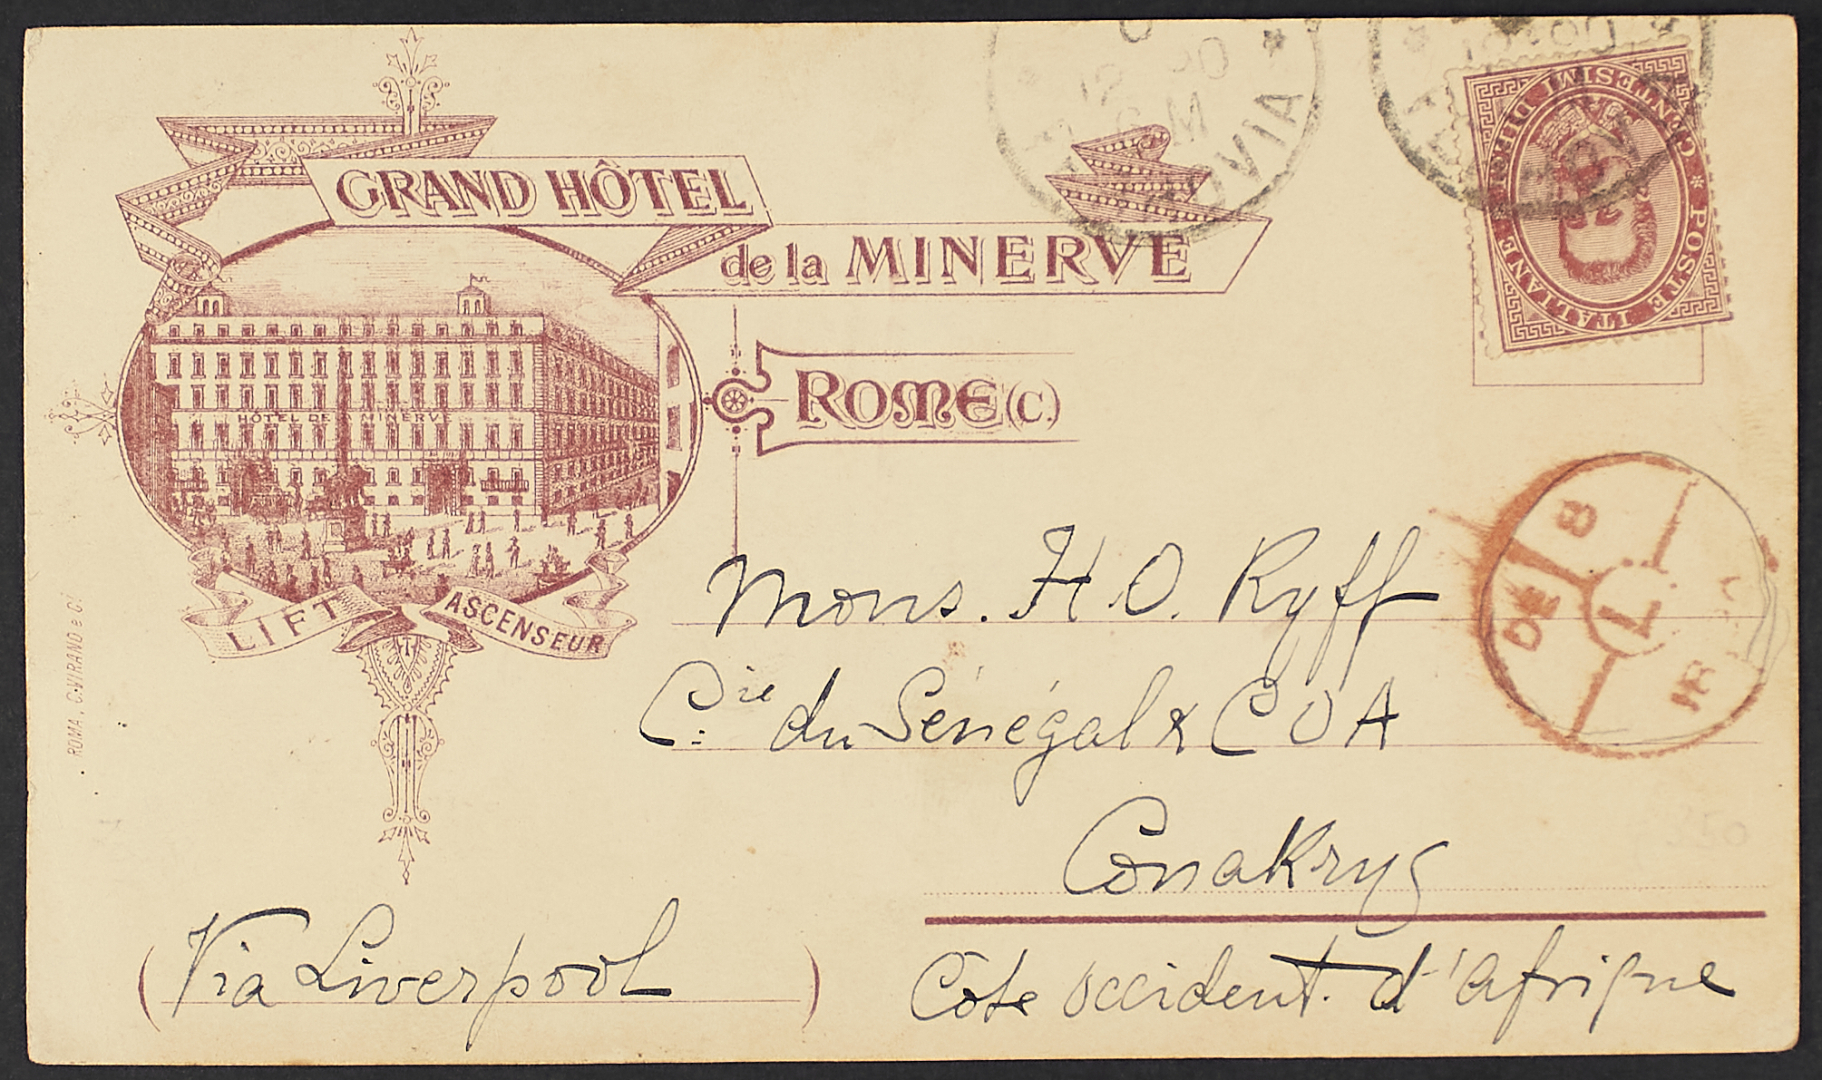 GRAND HÔTEL
de la MINERVE
ROME (C.)
HÔTEL DE MINERVE
LIFT ASCENSEUR
ROMA, C. VIRANO e Cⁱ
POSTE ITALIANE
CENTESIMI DIECI
12 90
6 M
L
DE
8
Mons. H. O. Ryff
Cie du Sénégal & C O A
Conakry
Côte occident. d'Afrique
(Via Liverpool)